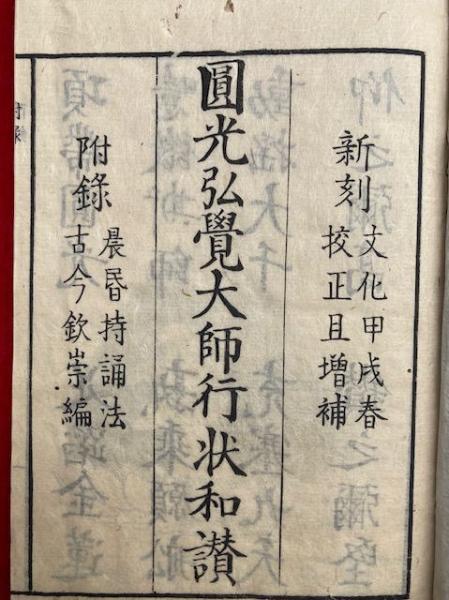 新刻 文化甲戌春
校正且増補
圓光弘覺大師行状和讃
附錄 晨昏持誦法
古今欽崇編
附錄